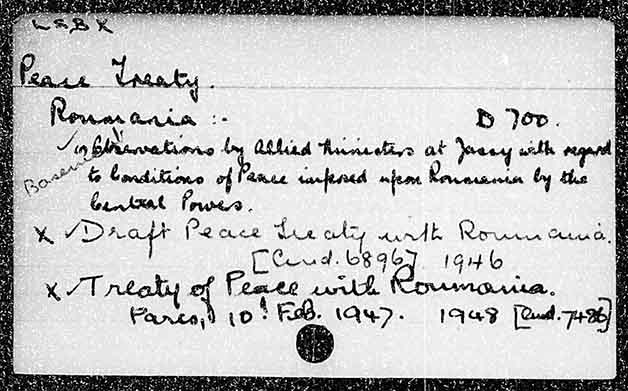 LSBX
Peace Treaty.
Roumania :- D 700.
✓ Observations by Allied Ministers at Jassy with regard
Basement
to Conditions of Peace imposed upon Roumania by the
Central Powers.
x ✓ Draft Peace Treaty with Roumania.
[Cmd. 6896] 1946
x ✓ Treaty of Peace with Roumania.
Paris, 10 Feb. 1947. 1948 [Cmd. 7486]